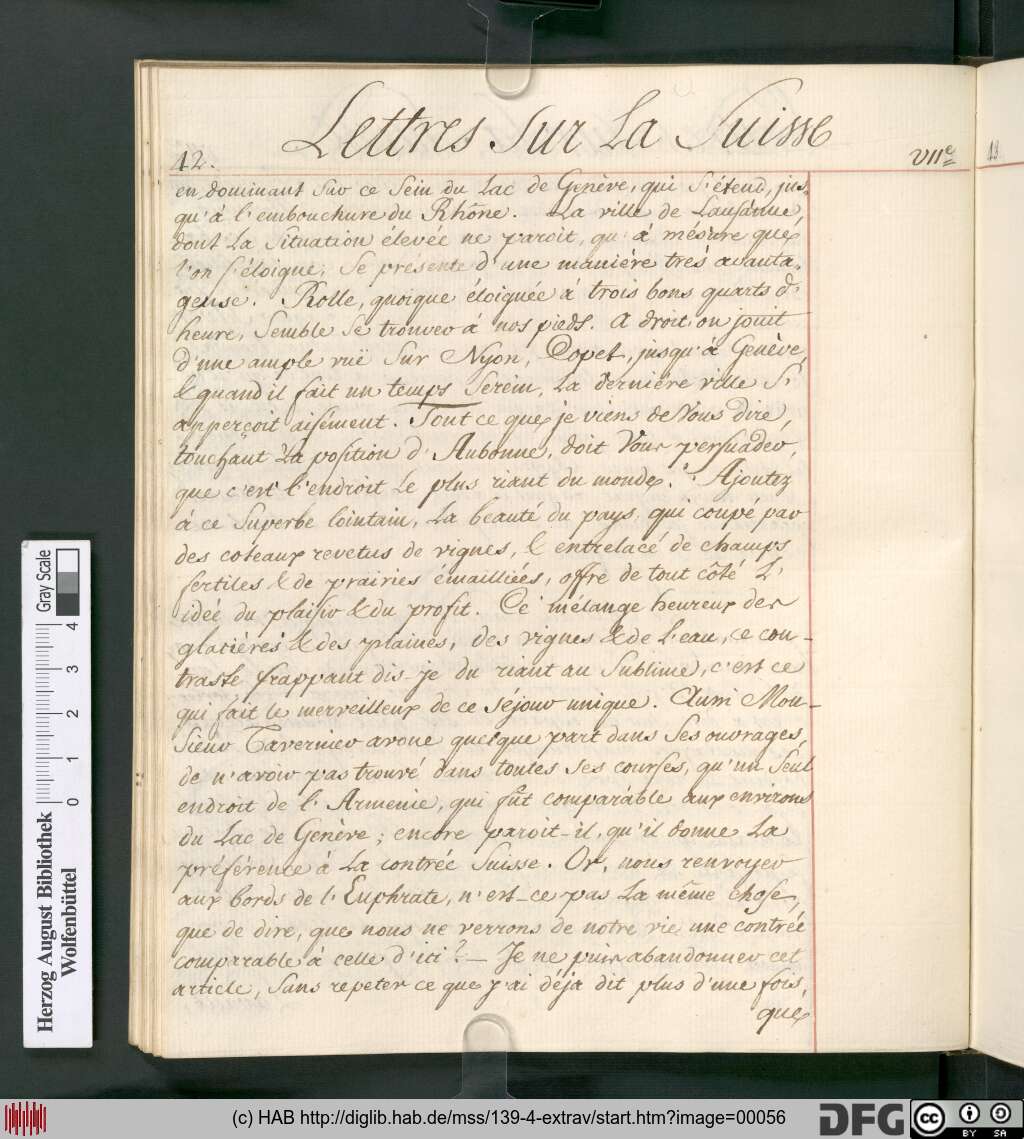 Lettres Sur La Suisse
12.
VIIe
13
en dominant sur ce Sein du Lac de Genève, qui S'étend, jus-
qu'à l'embouchure du Rhône. La ville de Lausanne,
dont La Situation élevée ne paroit, qu'à mésure que
l'on S'éloigne, Se présente d'une manière trés avanta-
geuse. Rolle, quoique éloignée à trois bons quarts d'
heure, Semble Se trouver à nos pieds. A droit on jouit
d'une ample vuë Sur Nyon, Copet, jusqu'à Genève,
& quand il fait un temps Serein, La derniére ville S'
apperçoit aisément. Tout ce que je viens de Vous dire,
touchant La position d'Aubonne, doit Vous persuader,
que c'est l'endroit Le plus riant du monde. Ajoutez
à ce Superbe lointain, La beauté du pays, qui coupé par
des coteaux revetus de vignes, & entrelacé de champs
fertiles & de prairies émailliées, offre de tout côté L'
idée du plaisir & du profit. Ce mélange heureux des
glacières & des plaines, des vignes & de L'eau, ce con-
traste frappant dis-je du riant au Sublime, c'est ce
qui fait le merveilleux de ce séjour unique. Aussi Mon-
Sieur Tavernier avoue quelque part dans Ses ouvrages,
de n'avoir pas trouvé dans toutes ses courses, qu'un Seul
endroit de l'Armenie, qui fût comparable aux environs
du Lac de Genève; encore paroit-il, qu'il donne La
préférence à La contrée Suisse. Or, nous renvoyer
aux bords de l'Euphrate, n'est-ce pas La même chose,
que de dire, que nous ne verrons de notre vie une contrée
comparable à celle d'ici? — Je ne puis abandonner cet
article, Sans repeter ce que j'ai déja dit plus d'une fois,
que
Gray Scale
0 1 2 3 4
Herzog August Bibliothek
Wolfenbüttel
(c) HAB http://diglib.hab.de/mss/139-4-extrav/start.htm?image=00056
DFG
cc BY SA